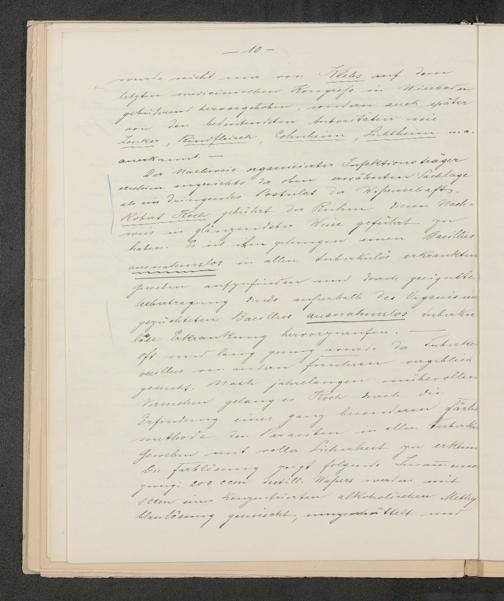 — 10 —
wurde nicht nur von Klebs auf dem
letzten medicinischen Kongress in Wiesbaden
gebührend hervorgehoben, sondern auch später
von den bedeutendsten Autoritäten wie
Zenker, Rindfleisch, Cohnheim, Lichtheim
anerkannt —
Der Nachweis organisirter Infektionsträger
angesichts der oben erwähnten Sachlage
als ein dringendes Postulat der Wissenschaft.
Robert Koch gebührt der Ruhm diesen Nach-
weis in glänzendster Weise geführt zu
haben. Es ist ihm gelungen einen Bacillus
ausnahmslos in allen tuberkulös erkrankten
Geweben aufzufinden und durch geeignete
Uebertragung dieses ausserhalb des Organismus
gezüchteten Bacillus ausnahmslos tuberku
löse Erkrankung hervorzurufen. —
Oft und lang genug wurde der Tuberkel
bacillus von andern Forschern vergeblich
gesucht. Nach jahrelangen mühevollen
Versuchen gelang es Koch durch die
Erfindung einer ganz besonderen Färbe
methode den Parasiten in allen
Geweben mit voller Sicherheit zu erkennen
Die Farblösung zeigt folgende Zusammense
zung: 200 ccm destill. Wassers werden mit
1 ccm einer konzentrirten alkoholischen Methy
lenblaulösung gemischt, umgeschüttelt und